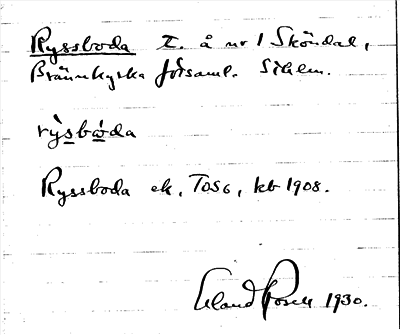 Ryssboda t. å nr 1 Sköndal,
Brännkyrka församl. Sthlm.
rỳsbøda
Ryssboda ek, T056, kb 1908.
Erland Rosell 1930.